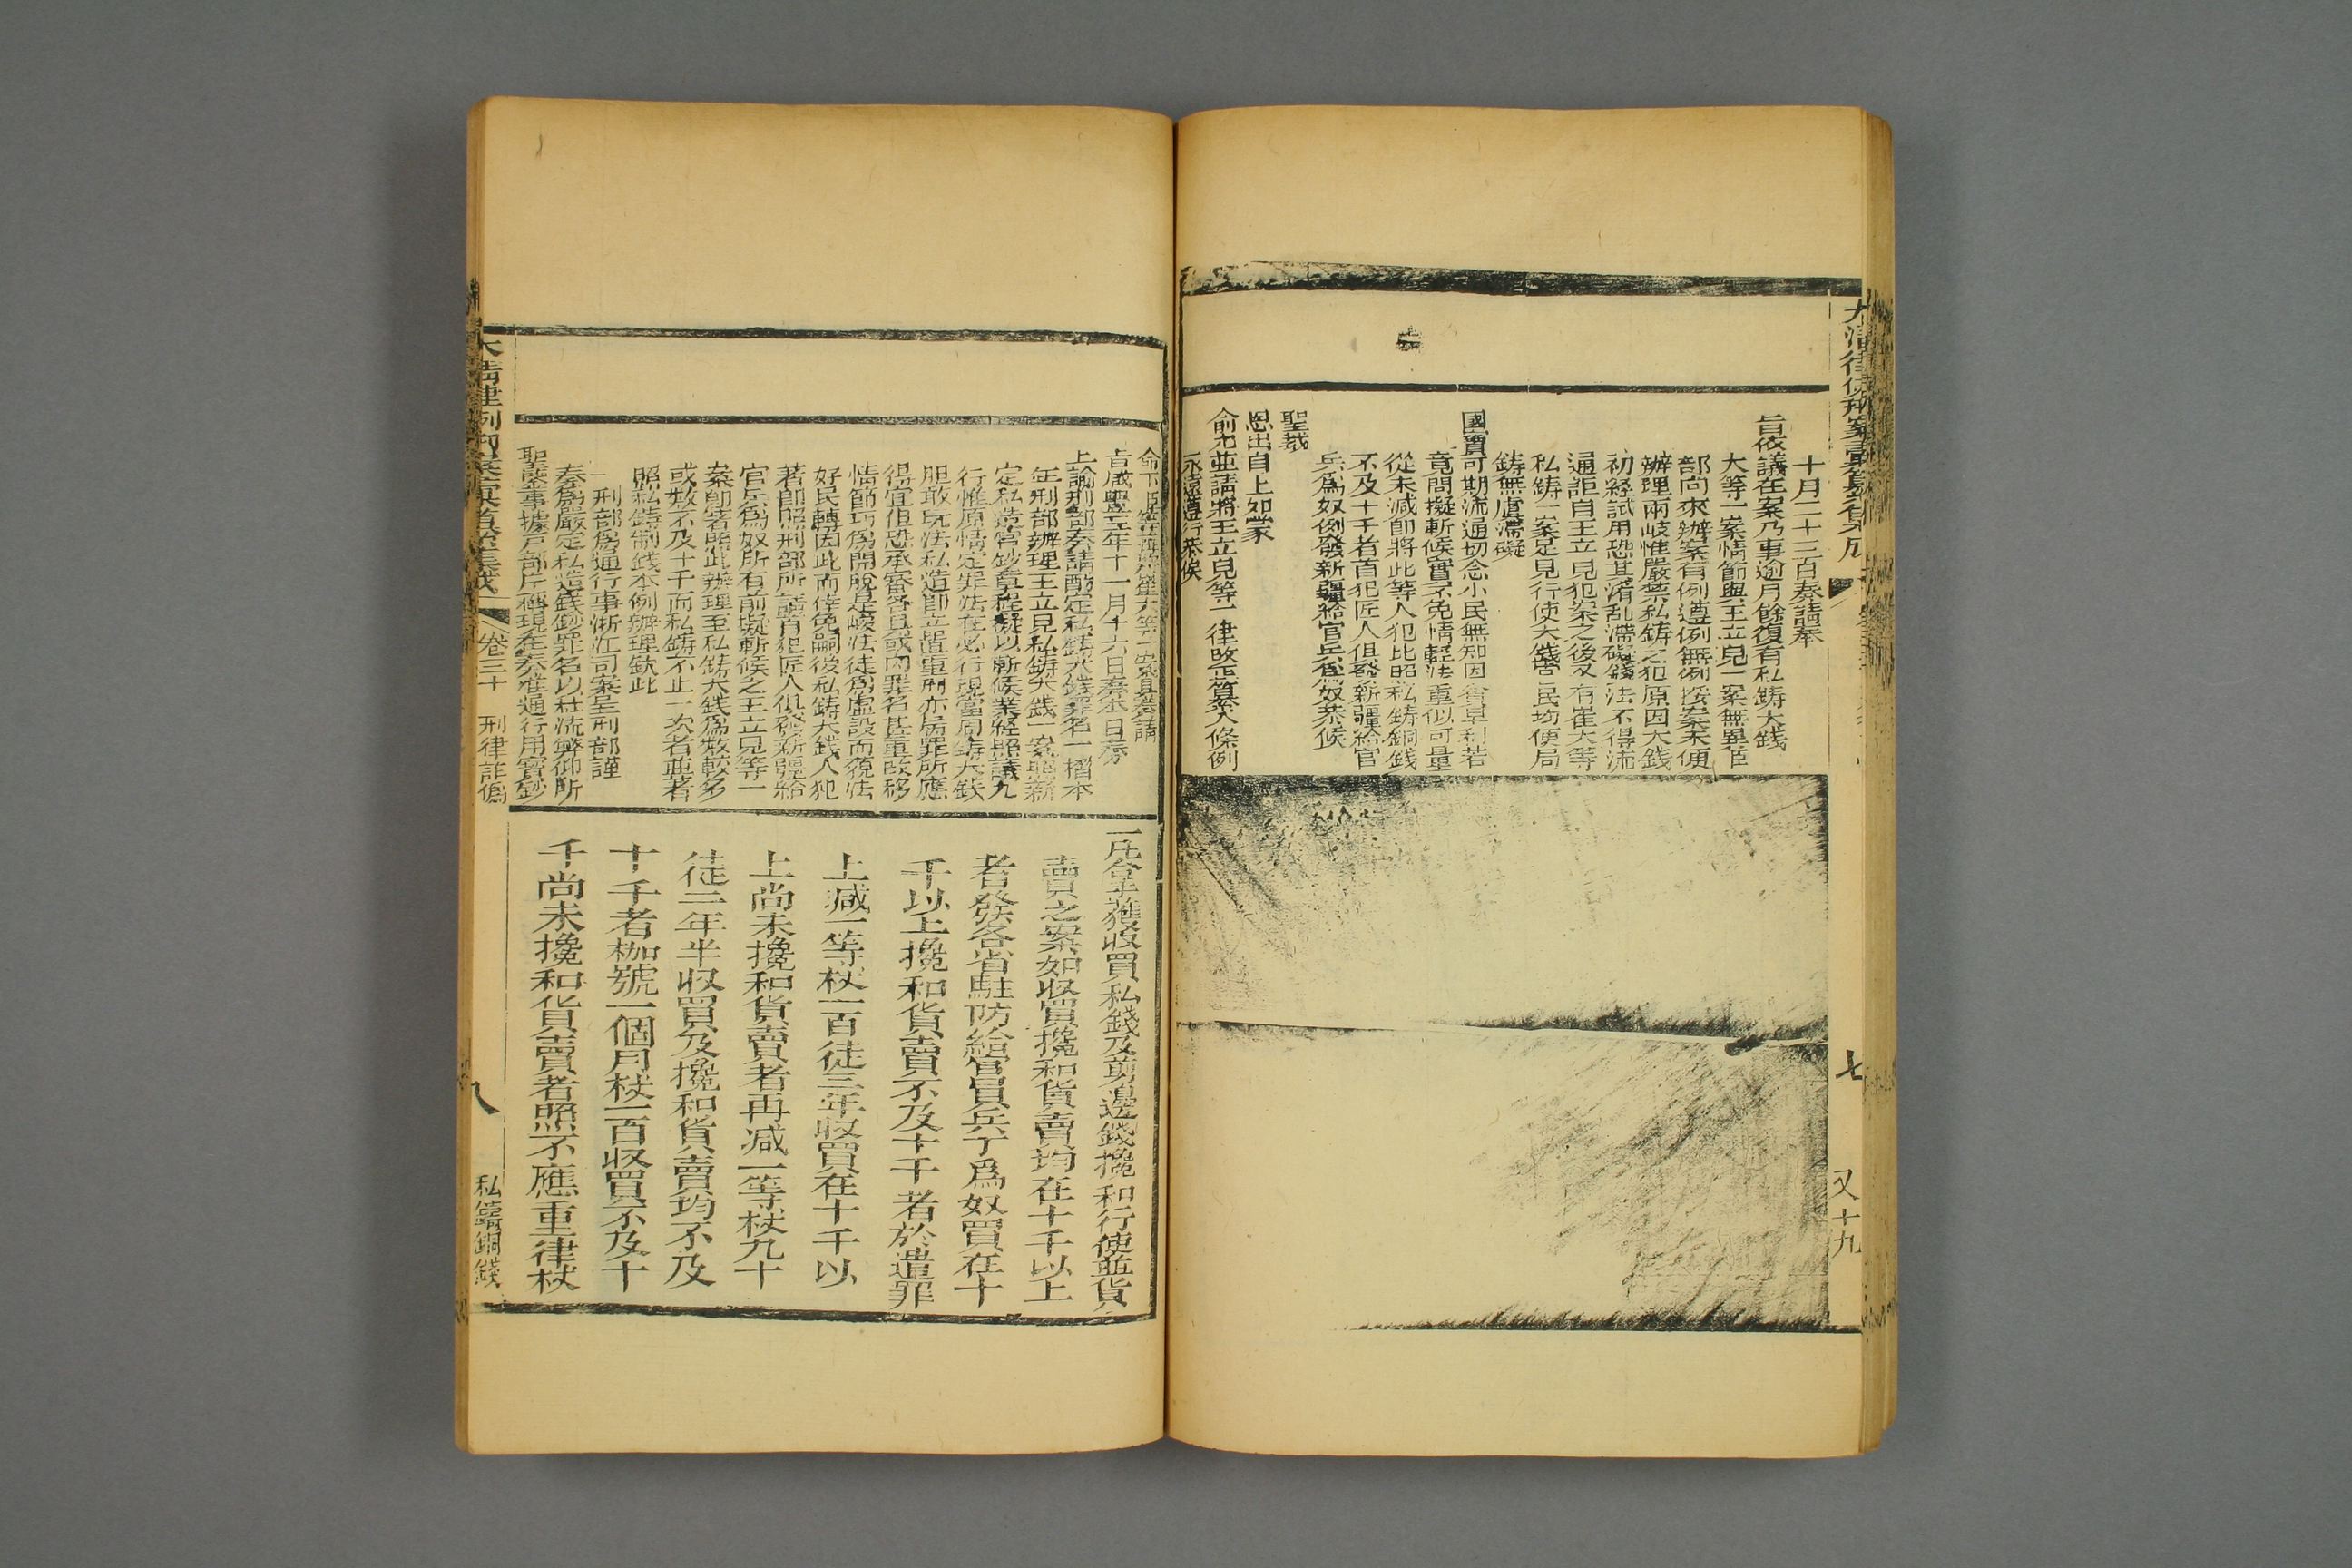 十月二十二日奏請奉
旨依議在案乃事逾月餘復有私鑄大錢
大等一案情節與王立見一案無異臣
部向來辦案有例遵例無例援案未便
辦理兩岐惟嚴禁私鑄之犯原因大錢
初經試用恐其淆乱滯礙錢法不得流
通詎自王立見犯案之後又有崔大等
私鑄一案足見行使大錢官民均便局
鑄無虞滯礙
國寶可期流通切念小民無知因貪卑利若
竟問擬斬候實不免情輕法重似可量
從末減即將此等人犯比照私鑄銅錢
不及十千者首犯匠人俱發新疆給官
兵爲奴例發新疆給官兵爲奴恭候
聖裁
恩出自上如蒙
俞允並請將王立見等一律改正纂入條例
永遠遵行恭候
七
又十九
旨咸豐三年十一月十六日奏本日奉
上諭刑部奏請酌定私鑄大錢罪名一摺本
年刑部辦理王立見私鑄大錢一案照新
定私造官鈔章程擬以斬候業經照議允
行惟原情定罪法在必行現當局鑄大錢
胆敢玩法私造即立置重刑亦屬罪所應
得宜但恐承審各員或因罪名甚重改移
情節巧爲開脫是峻法徒爲虛設而藐法
奸民轉因此而倖免嗣後私鑄大錢人犯
著即照刑部所請首犯匠人俱發新疆給
官兵爲奴所有前擬斬候之王立見等一
案即著照此辦理至私鑄大錢爲數較多
或數不及十千而私鑄不止一次者並著
照私鑄制錢本例辦理欽此
一刑部爲通行事浙江司案呈刑部謹
奏爲嚴定私造錢鈔罪名以杜流弊仰祈
聖鑒事據戶部片稱現在奏准通行用寶鈔
一凡拿獲收買私錢及剪邊錢攙和行使並貨
賣之案如收買攙和貨賣均在十千以上
者發各省駐防給官員兵丁爲奴買在十
千以上攙和貨賣不及十千者於遣罪
上減一等杖一百徒三年收買在十千以
上尚未攙和貨賣者再減一等杖九十
徒二年半收買及攙和貨賣均不及
十千者枷號一個月杖一百收買不及十
千尚未攙和貨賣者照不應重律杖
卷三十 刑律詐僞
八
私鑄銅錢